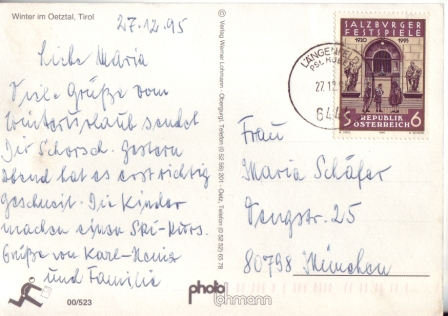 Winter im Oetztal, Tirol
27.12.95
Liebe Maria
Viele Grüße vom
Winterurlaub sendet
Dir Schorsch. Gestern
Abend hat es erst richtig
geschneit. Die Kinder
machen einen Ski-Kurs.
Grüße von Karl-Heinz
und Familie
00/523
© Verlag Werner Lohmann - Obergurgl, Telefon (0 52 56) 201 - Oetz, Telefon (0 52 52) 65 78
photo
lohmann
LÄNGENFELD
27.12.
644
SALZBURGER
FESTSPIELE
1920 1995
REPUBLIK
S ÖSTERREICH 6
Frau
Maria Schäfer
Pengstr. 25
80798 München